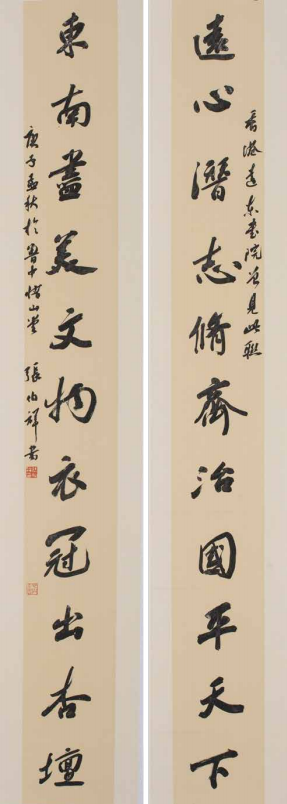 香港遠東書院曾見此聯
遠心潛志脩齊治國平天下
東南盡美文物衣冠出杏壇
庚子孟秋於魯中山堂 張伯祥書